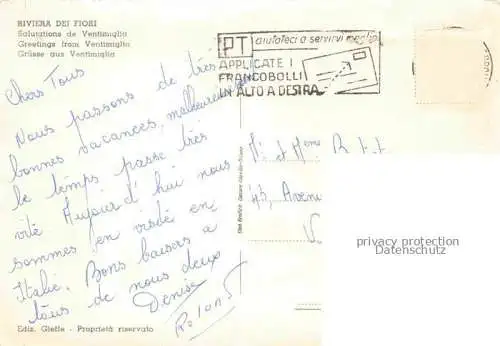 RIVIERA DEI FIORI
Salutations de Ventimiglia
Greetings from Ventimiglia
Grüsse aus Ventimiglia
PT aiutateci a servirvi meglio
APPLICATE I
FRANCOBOLLI
IN ALTO A DESTRA
Chers Tous
Nous passons de très
bonnes vacances, malheureuse
le temps passe très
vite Aujourd'hui nous
sommes en visite en
Italie. Bons baisers à
tous de nous deux
Denise
Roland
Mr et Mme
43, Avenue
privacy protection
Datenschutz
Ediz. Gieffe - Proprietà riservata